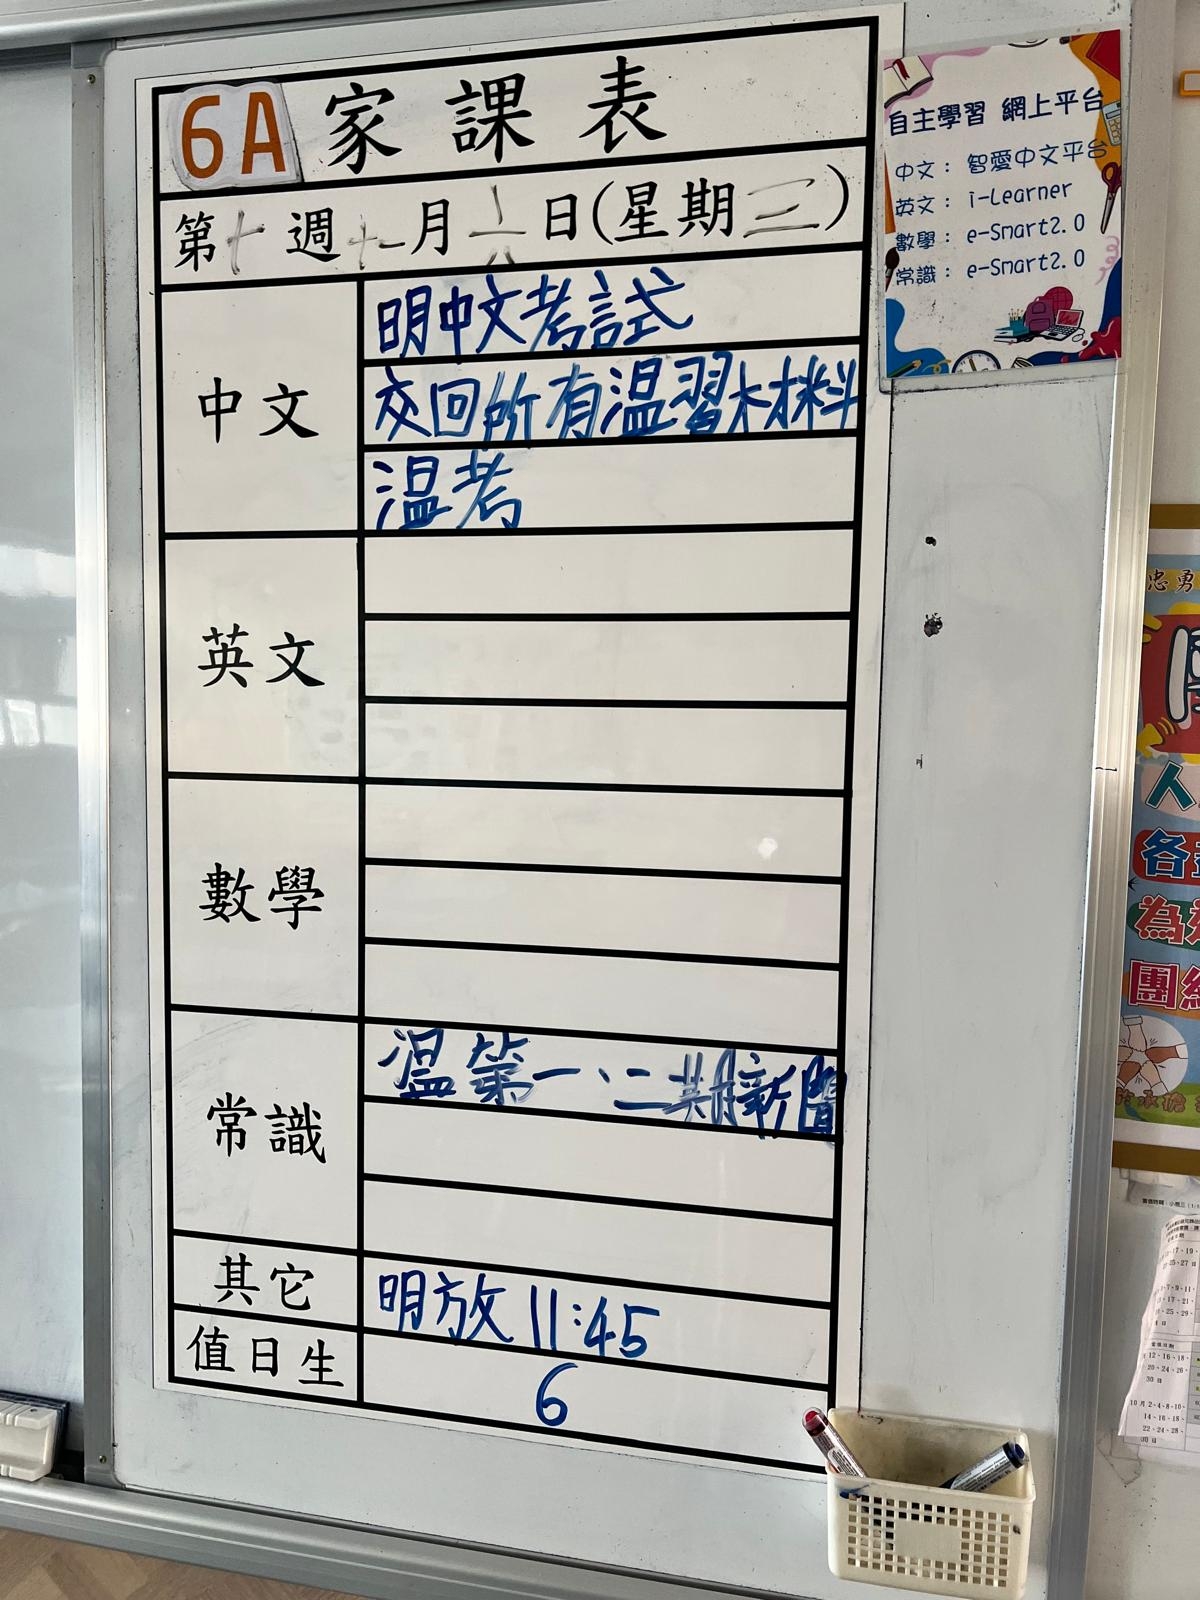 6A 家課表
第十週十一月六日(星期三)
中文
明中文考試
交回所有溫習木材料
溫考
英文
數學
常識
溫第一、二期新聞
其它
明放 11:45
值日生
6
自主學習 網上平台
中文： 智愛中文平台
英文： i-Learner
數學： e-Smart2.0
常識： e-Smart2.0
忠勇
人
各
為
團